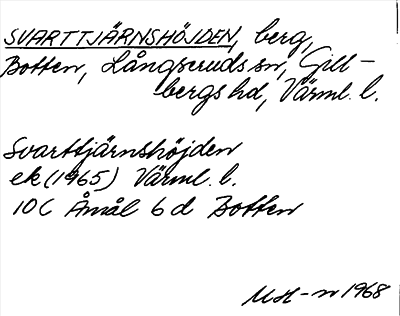 SVARTTJÄRNSHÖJDEN, berg,
Botten, Långseruds sn, Gill-
bergs hd, Värml. l.
Svarttjärnshöjden
ek (1965) Värml. l.
10C Åmål 6d Botten
MH-n 1968